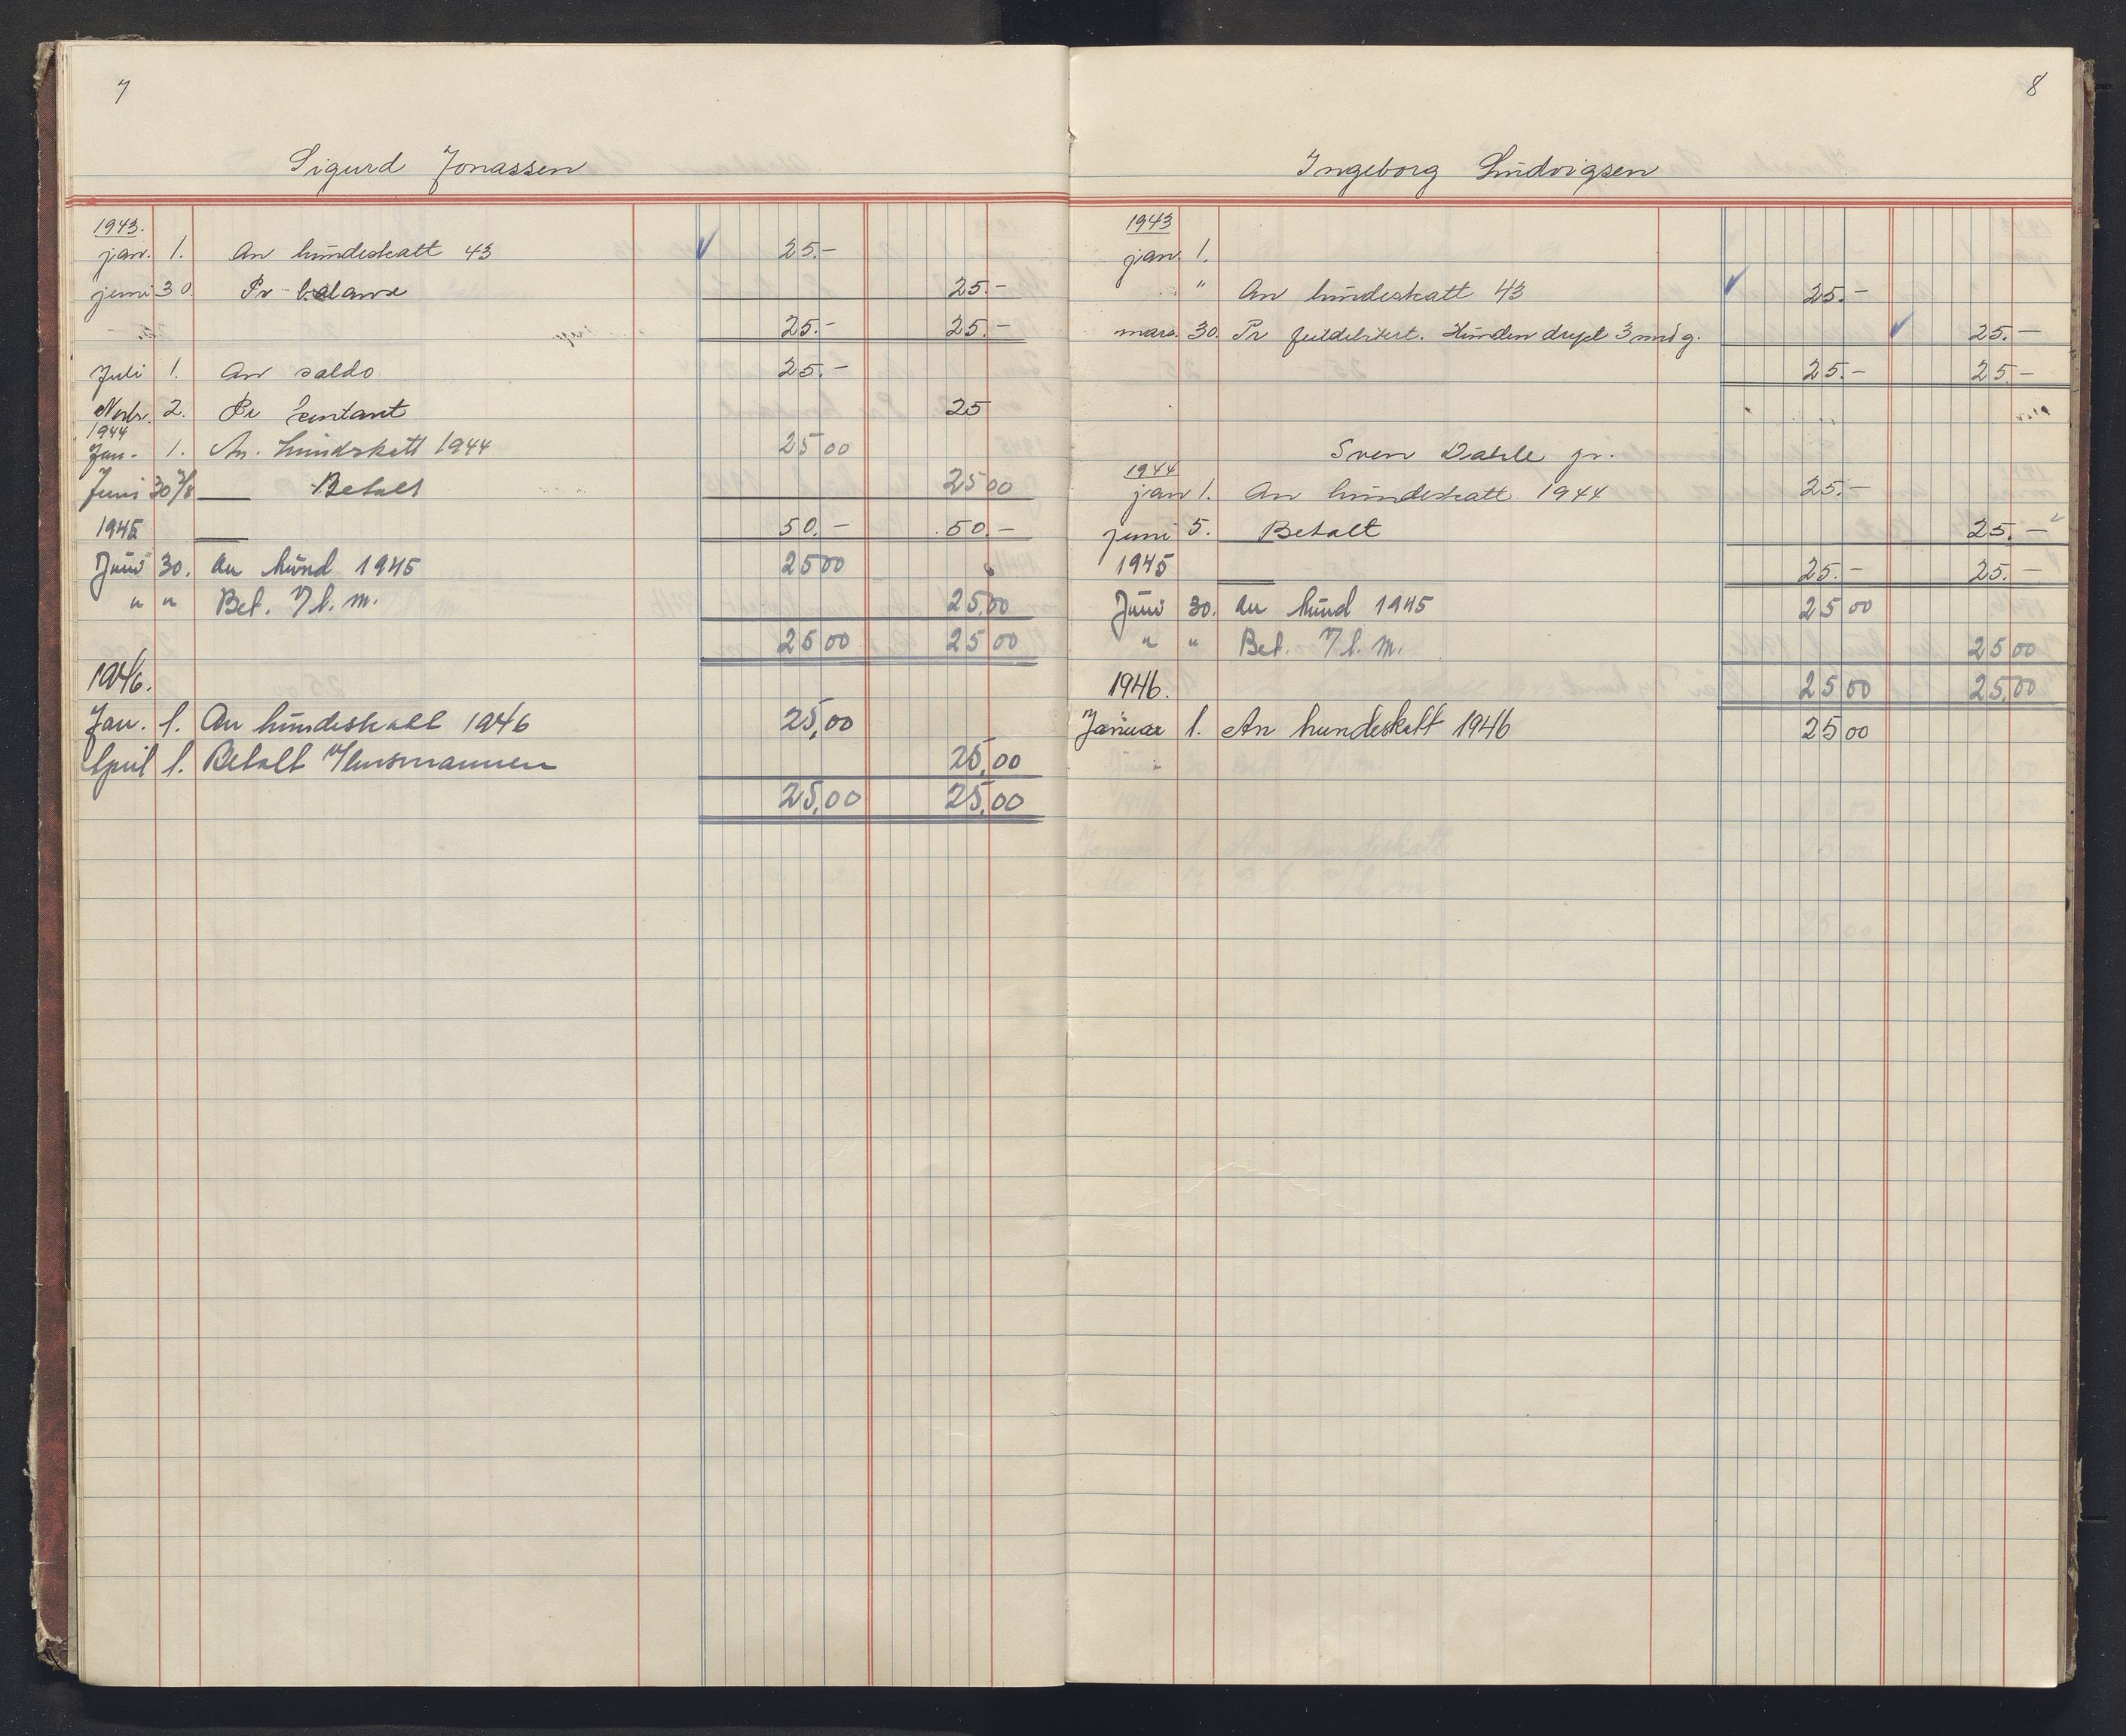 7
Sigurd Jonassen
1943.
jan. 1. An hundeskatt 43 25.-
juni 30. Pr balanse 25.-
25.- 25.-
Juli 1. An saldo 25.-
Novbr. 2. Pr kontant 25
1944
Jan. 1. An. hundskatt 1944 25 00
Juni 30 2/8 Betalt 25 00
1945 50.- 50.-
Juni 30. An hund 1945 25 00
" " Bet. t/l.m. 25.00
25 00 25 00
1946.
Jan. 1. An hundeskatt 1946 25,00
April 1. Betalt t/lensmannen 25,00
25,00 25,00
8
Ingeborg Ludvigsen
1943
jan. 1.
" An hundeskatt 43 25.-
mars. 30. Pr feildebitert. Hunden drept 3 mnd g. 25.-
25.- 25.-
Sven Dahle jr.
1944
jan 1. An hundeskatt 1944 25.-
juni 5. Betalt 25.-
1945 25.- 25.-
Juni 30. An hund 1945 25 00
" " Bet. t/l.m. 25 00
1946. 25 00 25.00
Januar 1. An hundeskatt 1946 25 00